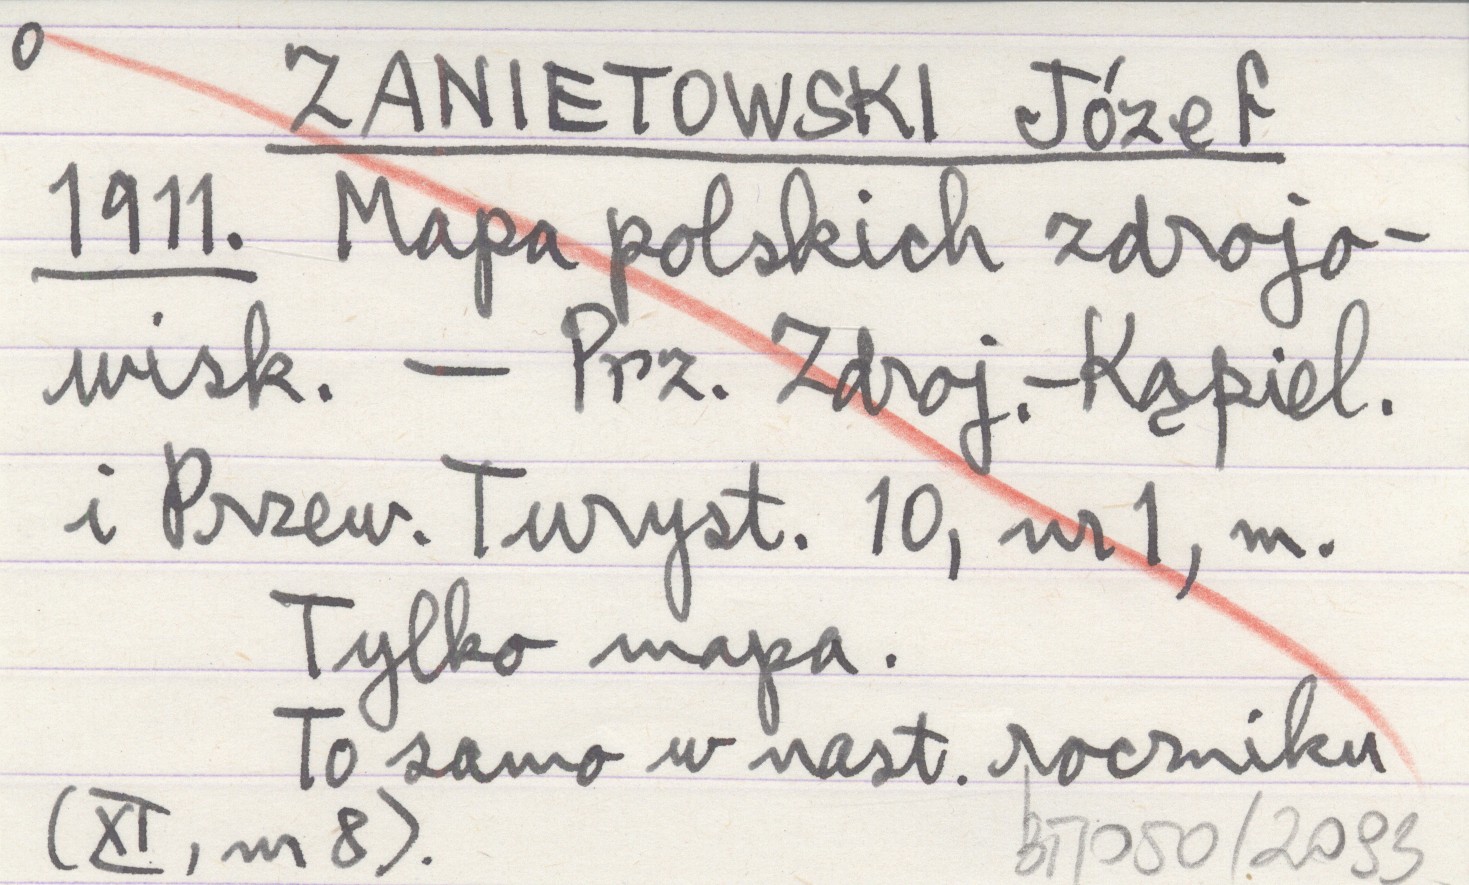 o
ZANIETOWSKI Józef
1911. Mapa polskich zdrojo-
wisk. — Prz. Zdroj.-Kąpiel.
i Przew. Turyst. 10, nr 1, m.
Tylko mapa.
To samo w nast. roczniku
(XI, nr 8).
050/2093